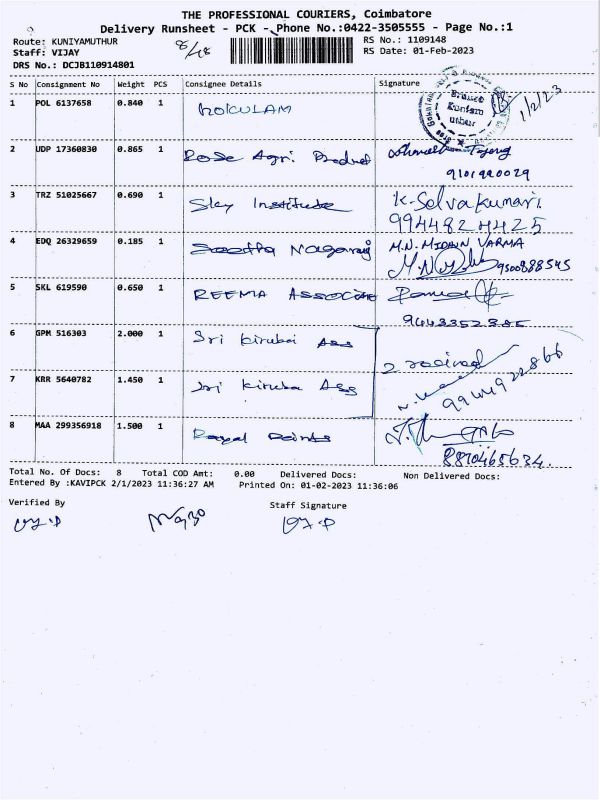 THE PROFESSIONAL COURIERS, Coimbatore
Delivery Runsheet - PCK - Phone No.:0422-3505555 - Page No.:1
Route: KUNIYAMUTHUR
RS No.: 1109148
Staff: VIJAY
RS Date: 01-Feb-2023
DRS No.: DCJB110914801
S No Consignment No Weight PCS Consignee Details Signature
1 POL 6137658 0.840 1
Branch
1/2/23
2 UDP 17360830 0.865 1 Rose Agri Product
9101990029
3 TRZ 51025667 0.690 1 Sky Institute K. Selvakumari
9944824425
4 EDQ 26329659 0.185 1 Nagaraj M.N. MIDHIN VARMA
9500888545
5 SKL 619590 0.650 1 REEMA ASSOCIATE
6 GPM 516303 2.000 1 Sri kirubai Ass
2 received
7 KRR 5640782 1.450 1 Sri kiruba Ass
9944922866
8 MAA 299356918 1.500 1 Royal Points
8870465634.
Total No. Of Docs: 8 Total COD Amt: 0.00 Delivered Docs: Non Delivered Docs:
Entered By :KAVIPCK 2/1/2023 11:36:27 AM Printed On: 01-02-2023 11:36:06
Verified By Staff Signature